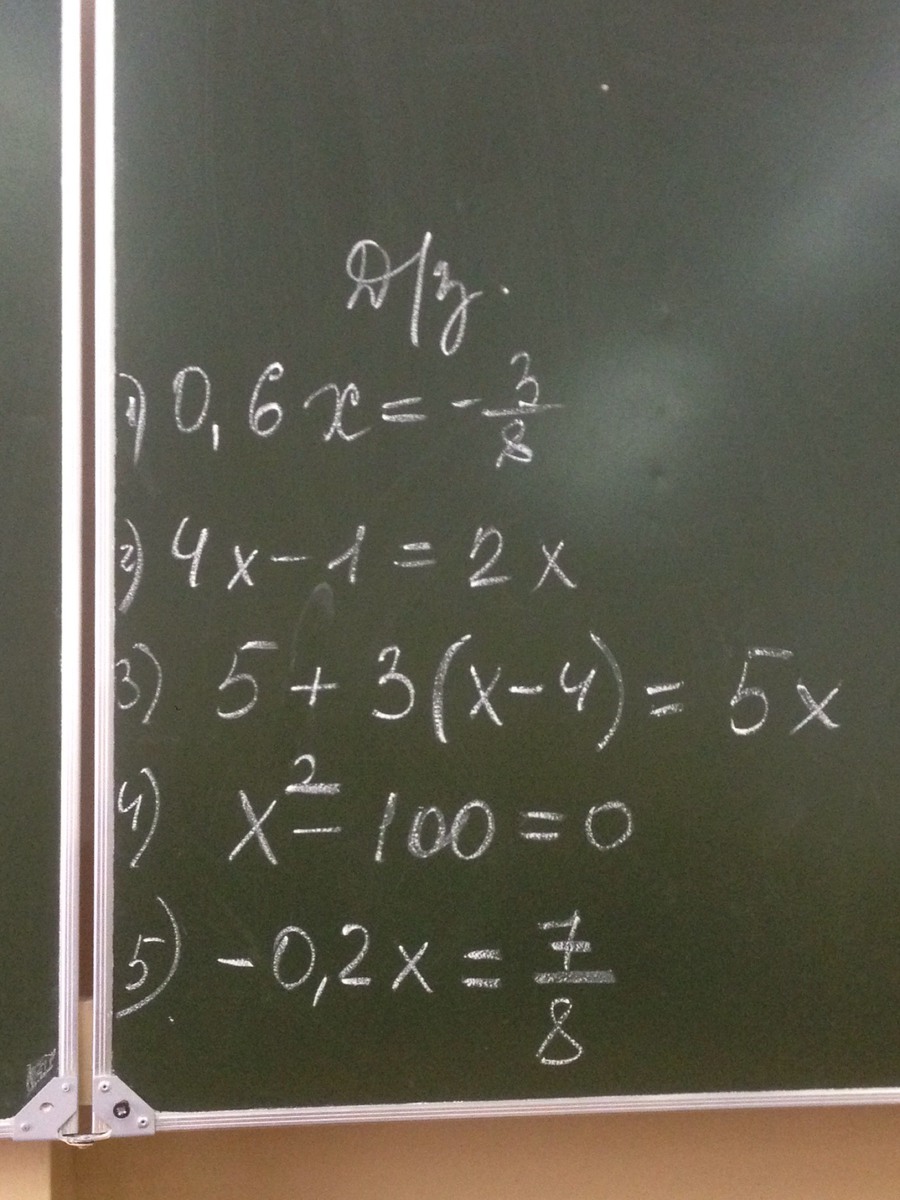 Д/з.
1) 0,6x = -3/8
2) 4x - 1 = 2x
3) 5 + 3(x - 4) = 5x
4) x² - 100 = 0
5) -0,2x = 7/8